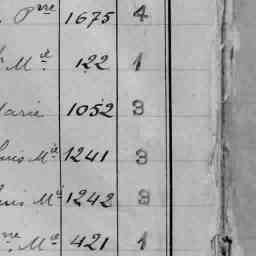 Pre 1675 4
Mie 122 1
Marie 1052 3
Louis Mie 1241 3
Louis Mie 1242 3
ne Mie 421 1